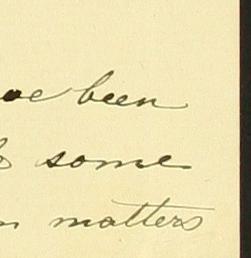 been
some
matters